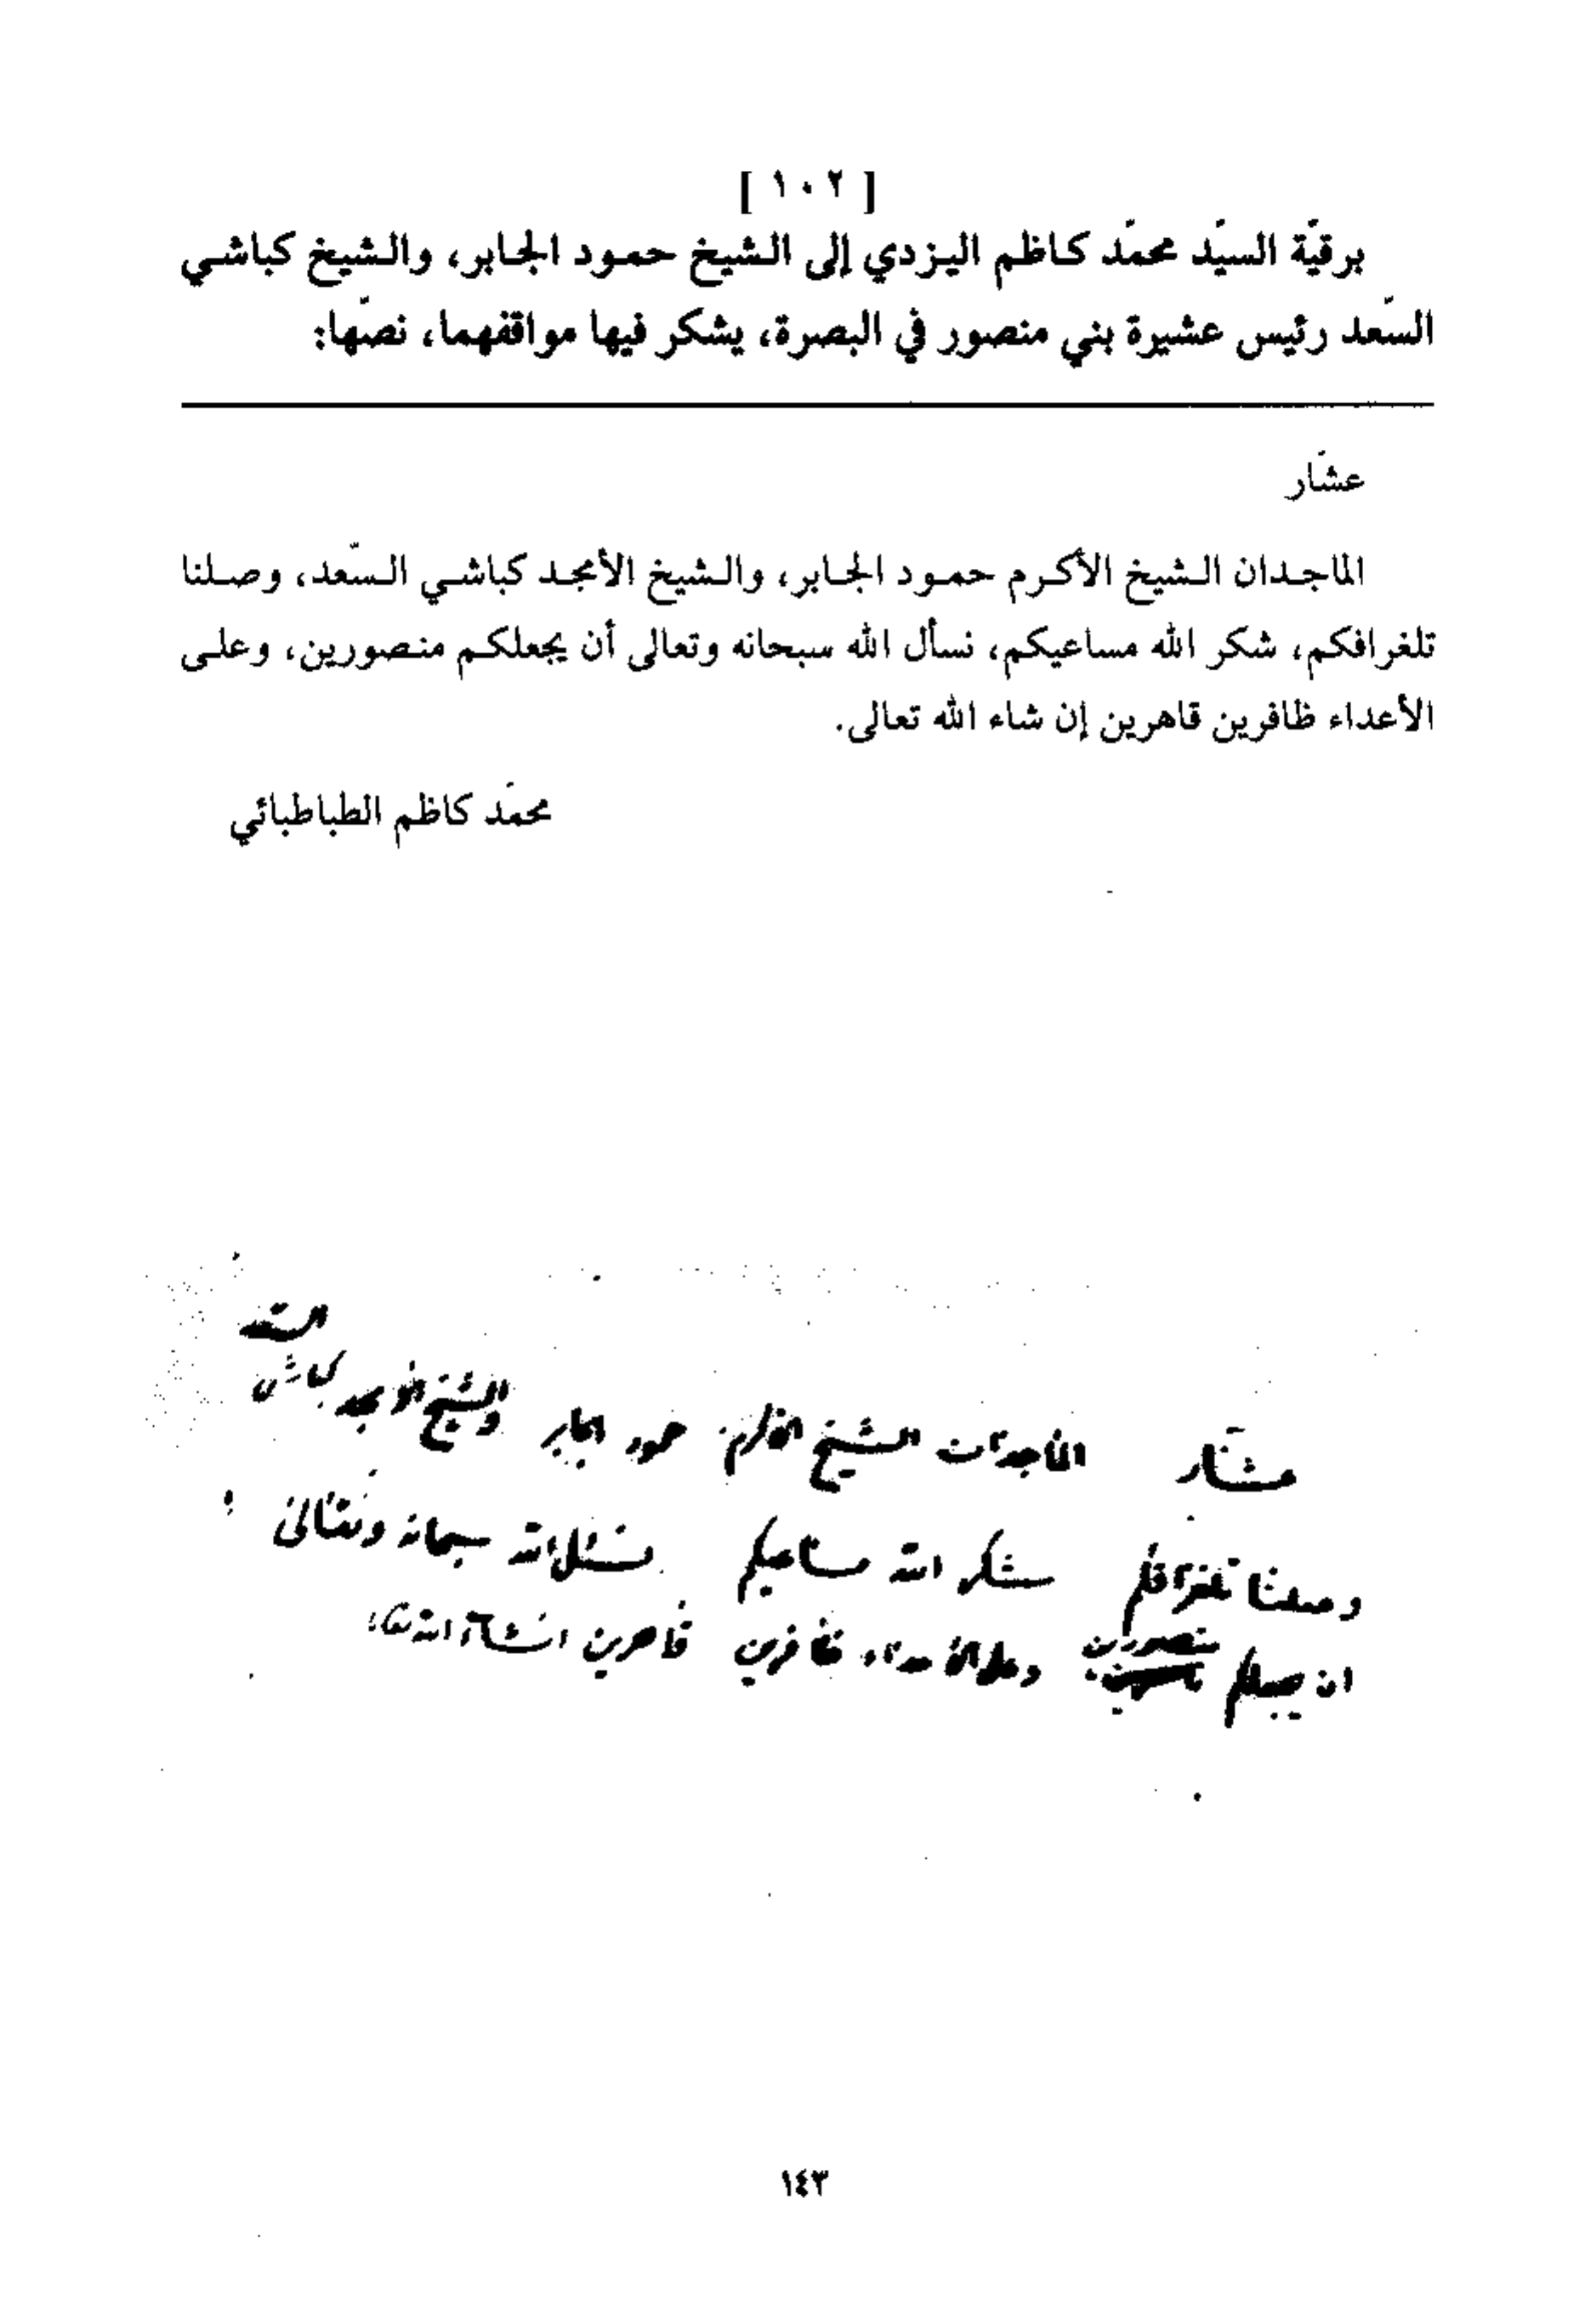 [ ١٠٢ ]
برقيّة السيّد محمّد كاظم اليزدي إلى الشيخ حمود الجابر، والشيخ كباشي
السّعد رئيس عشيرة بني منصور في البصرة، يشكر فيها مواقفهما، نصّها:
عشّار
الماجدان الشيخ الأكرم حمود الجابر، والشيخ الأمجد كباشي السّعد، وصلنا
تلغرافكم، شكر الله مساعيكم، نسأل الله سبحانه وتعالى أن يجعلكم منصورين، وعلى
الأعداء ظافرين قاهرين إن شاء الله تعالى.
محمّد كاظم الطباطبائي
عشّار الماجدان الشيخ الاكرم حمود الجابر والشيخ الامجد كباشي السّعد
وصلنا تلغرافكم شكر الله مساعيكم نسئل الله سبحانه وتعالى
ان يجعلكم منصورين وعلى الأعداء ظافرين قاهرين انشاء الله تعا
١٤٣